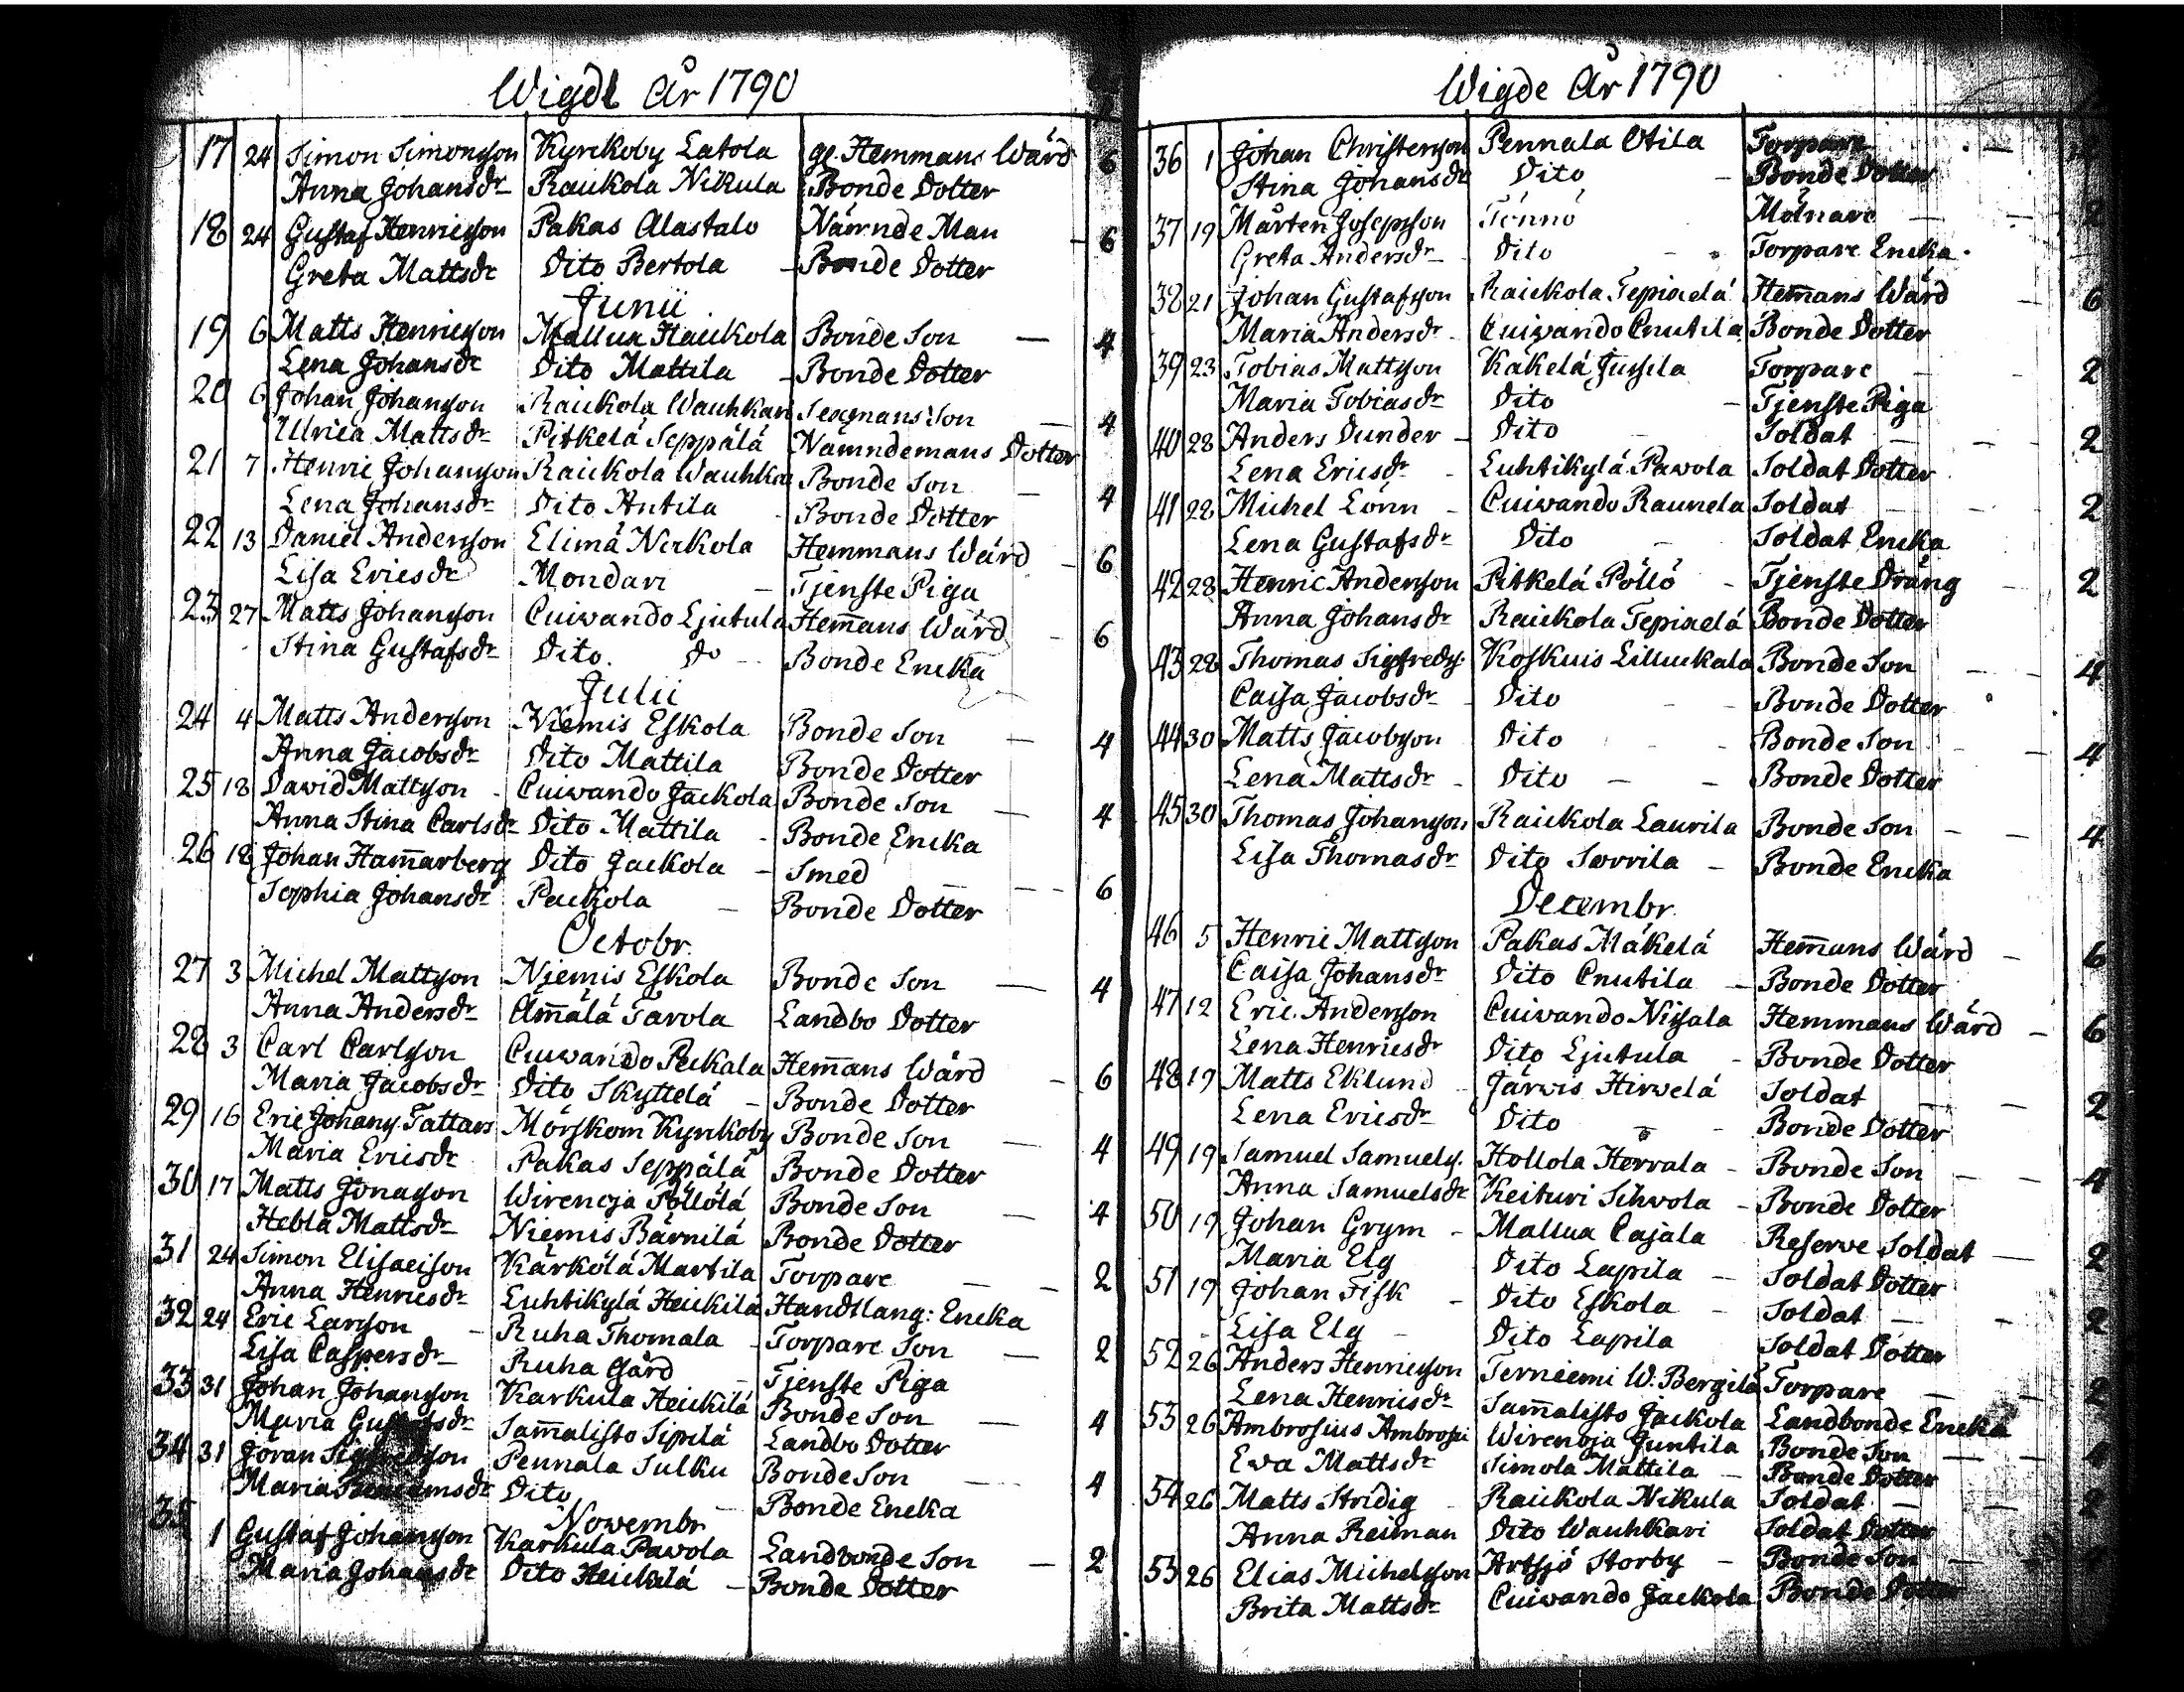 Wigde År 1790
17 24 Simon Simonsson Kyrckoby Latola gl. Hemmans Wärd 6
Anna Johansdr Raickola Nikula Bonde Dotter
18 24 Gustaf Henricsson Pakas Alastalo Nämnde Man - 6
Greta Mattsdr Dito Bertola - Bonde Dotter
Junii
19 6 Matts Henricsson Mallua Haukola Bonde Son — 4
Lena Johansdr Dito Mattila - Bonde Dotter
20 6 Johan Johansson Raickola Wauhkari Sexmans Son — 4
Ulrica Mattsdr Pitkelä Seppälä Nämndemans Dotter
21 7 Henric Johansson Raickola Wauhkari Bonde Son — 4
Lena Johansdr Dito Antila - Bonde Dotter
22 13 Daniel Andersson Elimä Nerkola Hemmans Wärd - 6
Lisa Ericsdr Mondari - Tjenste Piga
23 27 Matts Johansson Cuivando Ljutula Hem̅ans Wärd - 6
Stina Gustafsdr Dito. Do - Bonde Encka
Julii
24 4 Matts Andersson Niemis Eskola Bonde Son — 4
Anna Jacobsdr Dito Mattila Bonde Dotter
25 18 David Mattsson - Cuivando Jackola Bonde Son — 4
Anna Stina Carlsdr Dito Mattila - Bonde Encka
26 18 Johan Ham̅arberg Dito Jackola - Smed — 6
Sophia Johansdr Packola - Bonde Dotter
Octobr.
27 3 Michel Mattsson Njemis Eskola Bonde Son — 4
Anna Andersdr Äm̅älä Tavola Landbo Dotter
28 3 Carl Carlsson Cuivando Peckala Hem̅ans Wärd - 6
Maria Jacobsdr Dito Skyttelä - Bonde Dotter
29 16 Eric Johanss. Tattars Mörskom Kyrckoby Bonde Son — 4
Maria Ericsdr Pakas Seppälä Bonde Dotter
30 17 Matts Jönasson Wirenoja Pöllölä Bonde Son — 4
Hebla Mattsdr Niemis Bärnilä Bonde Dotter
31 24 Simon Elisaeison Kärkölä Martila Torpare — 2
Anna Henricsdr Luhtikylä Heickilä Handtlang: Encka
32 24 Eric Larsson - Ruha Thomala - Torpare Son — 2
Lisa Caspersdr Ruha Gård - Tjenste Piga
33 31 Johan Johansson Karkula Heickilä Bonde Son — 4
Maria Gustafsdr Sam̅alisto Sipilä Landbo Dotter
34 31 Jöran Sigfredsson Pennala Sulku Bonde Son — 4
Maria Dito - Bonde Encka
Novembr
35 1 Gustaf Johansson Karkula Pavola Landbonde Son — 2
Maria Johansdr Dito Heickilä - Bonde Dotter
Wigde År 1790
36 1 Johan Christersson Pennala Otila Torpare —
Stina Johansdr Dito - Bonde Dotter
37 19 Mårten Josepsson Tönnö Mölnare — 2
Greta Andersdr Dito - Torpare Encka.
38 21 Johan Gustafsson Raickola Tepiaelä Hem̅ans Wärd - 6
Maria Andersdr Cuivando Cnutila Bonde Dotter
39 23 Tobias Mattsson Käkelä Jussila Torpare - 2
Maria Tobiasdr Dito - Tjenste Piga
40 28 Anders Dunder - Dito - Soldat — 2
Lena Ericsdr - Luhtikylä Pavola Soldat Dotter
41 28 Michel Lönn - Cuivando Raunela Soldat - 2
Lena Gustafsdr Dito - Soldat Encka
42 28 Henric Andersson Pitkelä Pöllö - Tjenste Dräng - 2
Anna Johansdr Raickola Tepiaelä Bonde Dotter
43 28 Thomas Sigfreds: Koskuis Lilluckala Bonde Son — 4
Caisa Jacobsdr - Dito - Bonde Dotter
44 30 Matts Jacobsson Dito - Bonde Son — 4
Lena Mattsdr - Dito — Bonde Dotter
45 30 Thomas Johansson Raickola Laurila Bonde Son — 4
Lisa Thomasdr Dito Sorrila - Bonde Encka
Decembr.
46 5 Henric Mattsson Pakas Mäkelä Hem̅ans Wärd - 6
Caisa Johansdr Dito Cnutila - Bonde Dotter
47 12 Eric Andersson Cuivando Nissala Hemmans Wärd - 6
Lena Henricsdr Dito Ljutula - Bonde Dotter
48 19 Matts Eklund Järvis Hirvelä Soldat — 2
Lena Ericsdr Dito - Bonde Dotter
49 19 Samuel Samuels. Hollola Herrala - Bonde Son — 4
Anna Samuelsdr Keituri Sihvola - Bonde Dotter
50 19 Johan Grym - Mallua Cajala Reserve Soldat — 2
Maria Elg Dito Lapila - Soldat Dotter
51 19 Johan Fisk - Dito Eskola - Soldat — 2
Lisa Elg - Dito Lapila Soldat Dotter
52 26 Anders Henricsson Terniemi W. Bergilä Torpare — 2
Lena Henricsdr Sam̅alisto Jackola Landbonde Encka
53 26 Ambrosius Ambrosii Wirenoja Juntila Bonde Son — 4
Eva Mattsdr Simola Mattila - Bonde Dotter
54 26 Matts Stridig Raickola Nikula Soldat — 2
Anna Reiman Dito Wauhkari Soldat Dotter
55 26 Elias Michelsson Artsjö Storby - Bonde Son —
Brita Mattsdr Cuivando Jackola Bonde Dotter